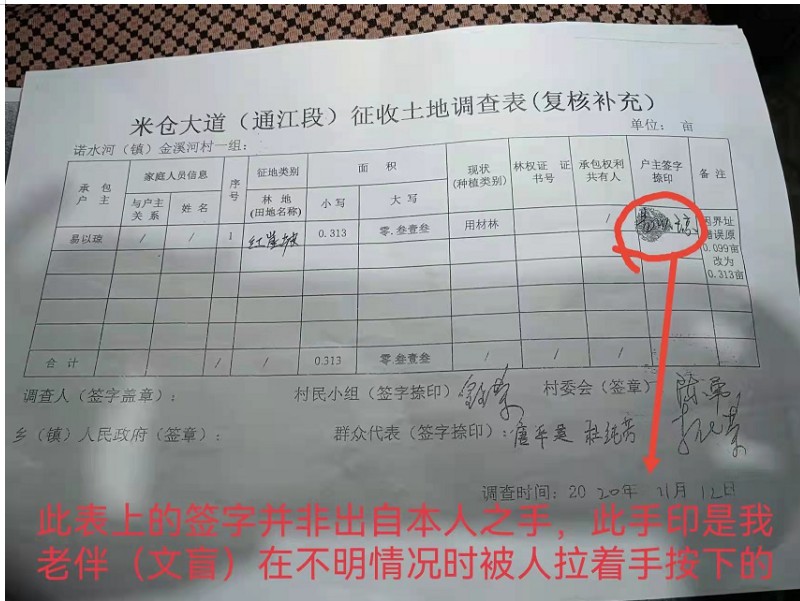 米仓大道（通江段）征收土地调查表(复核补充)
单位： 亩
诺水河（镇）金溪河村一组：
承包户主 家庭人员信息 序号 征地类别 面 积 现状(种植类别) 林权证 证书号 承包权利共有人 户主签字捺印 备 注
与户主关系 姓 名 林 地(田地名称) 小 写 大 写
易以琼 / / 1 红崖坡 0.313 零.叁壹叁 用材林 / 易以琼 因界址错误原0.099亩改为0.313亩
合 计 / / 0.313 零.叁壹叁 / / /
调查人（签字盖章）： 村民小组（签字捺印） 村委会（签章）
乡（镇）人民政府（签章）： 群众代表（签字捺印）：
调查时间：2020年 11月 12日
此表上的签字并非出自本人之手，此手印是我
老伴（文盲）在不明情况时被人拉着手按下的